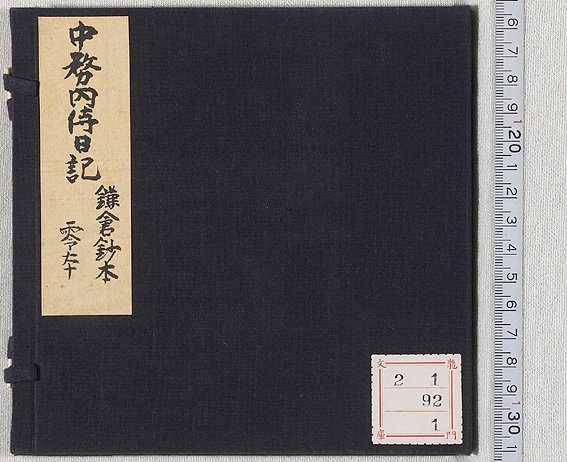 中務内侍日記
鎌倉鈔本
零本
龍門文庫
2 1
92
1
6 7 8 9 20 1 2 3 4 5 6 7 8 9 30 1